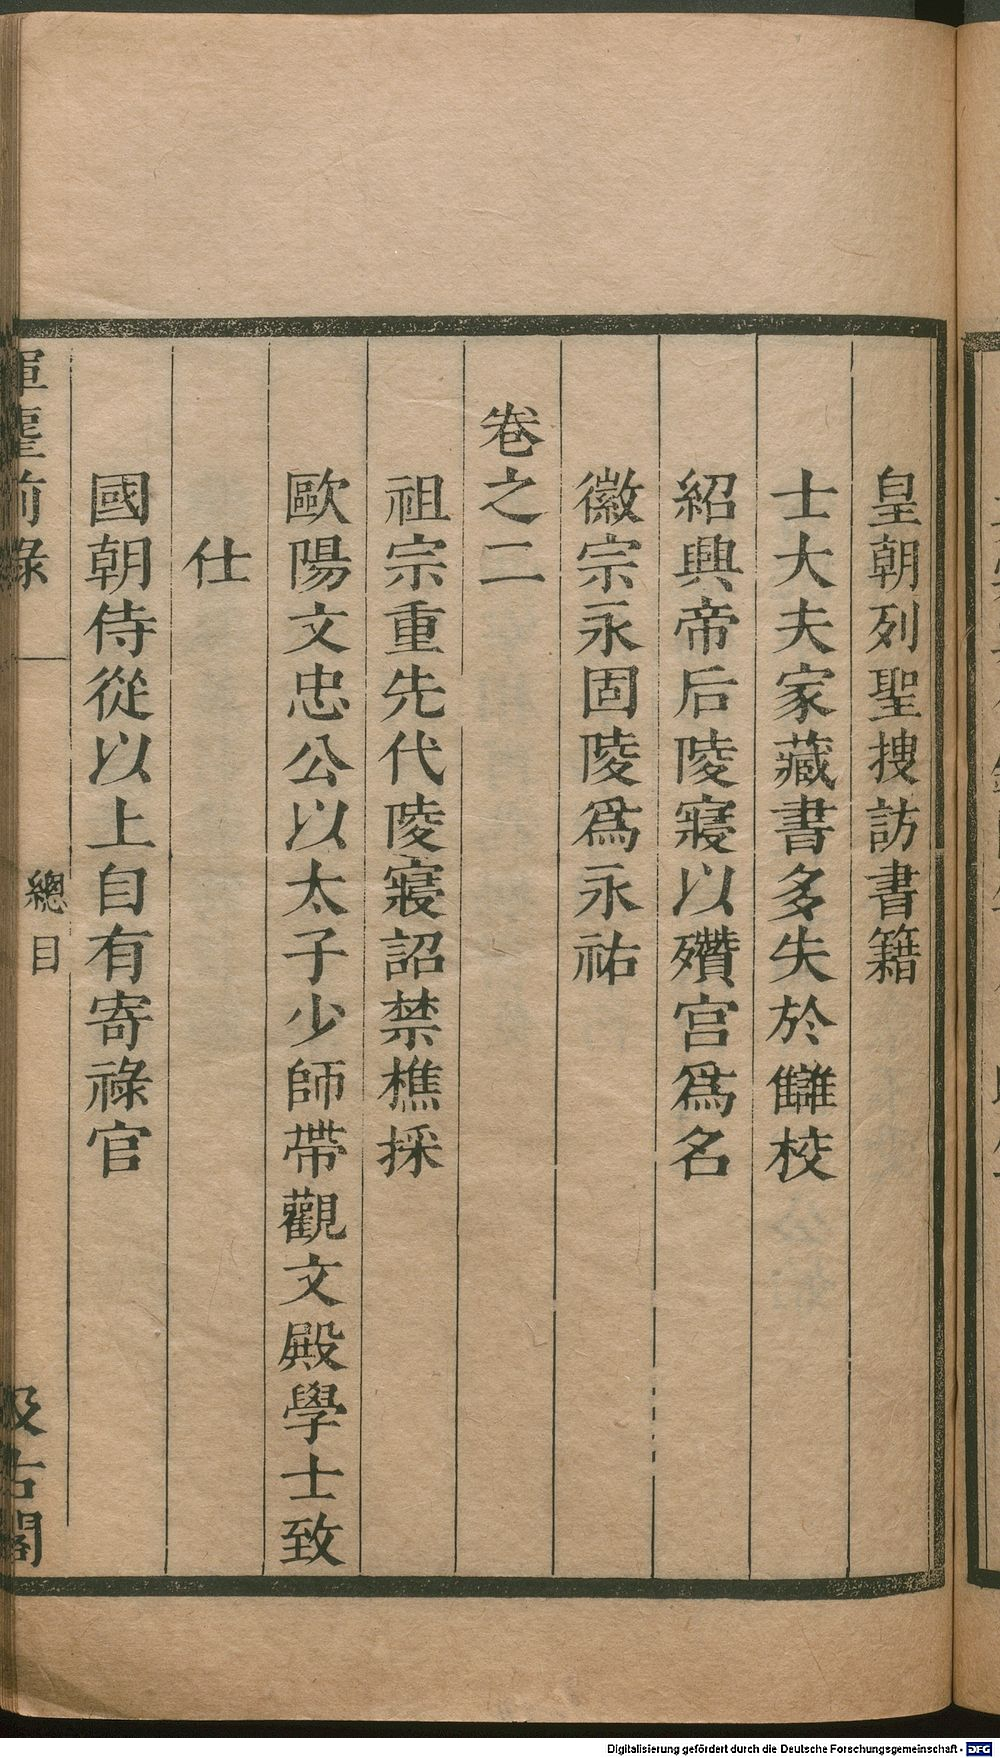 皇朝列聖捜訪書籍
士大夫家藏書多失於讎校
紹興帝后陵寢以欑宮爲名
徽宗永固陵爲永祐
卷之二
祖宗重先代陵寢詔禁樵採
歐陽文忠公以太子少師帶觀文殿學士致
仕
國朝侍從以上自有寄祿官
揮麈前錄
總目
汲古閣
Digitalisierung gefördert durch die Deutsche Forschungsgemeinschaft - DFG